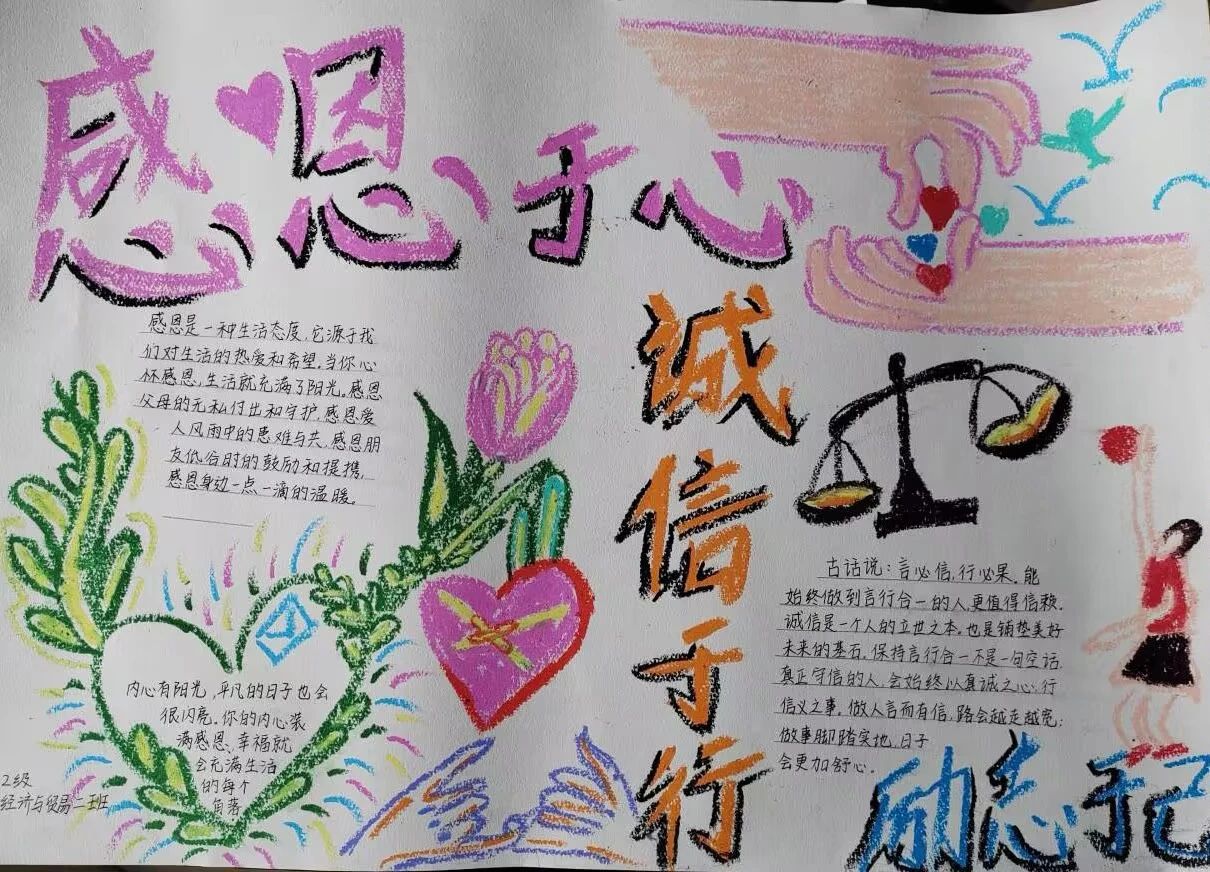 感恩于心
感恩是一种生活态度,它源于我
们对生活的热爱和希望。当你心
怀感恩,生活就充满了阳光。感恩
父母的无私付出和守护,感恩爱
人风雨中的患难与共,感恩朋
友低谷时的鼓励和提携,
感恩身边一点一滴的温暖。
内心有阳光,平凡的日子也会
很闪亮。你的内心装
满感恩、幸福就
会充满生活
的每个
角落
2级
经济与贸易二班
诚
信
于
行
古话说:言必信,行必果。能
始终做到言行合一的人,更值得信赖。
诚信是一个人的立世之本。也是铺垫美好
未来的基石,保持言行合一不是一句空话
真正守信的人,会始终以真诚之心,行
信义之事。做人言而有信,路会越走越宽;
做事脚踏实地,日子
会更加舒心。
励志于己